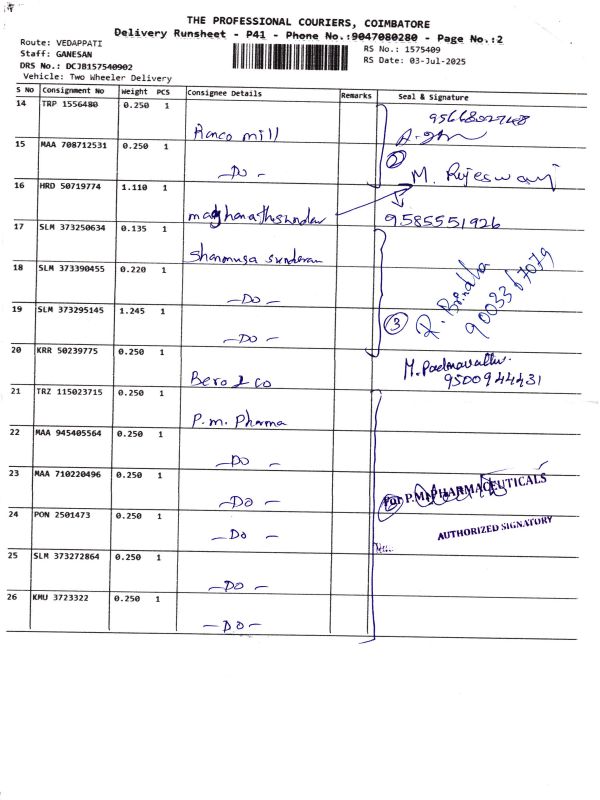 THE PROFESSIONAL COURIERS, COIMBATORE
Delivery Runsheet - P41 - Phone No.:9047080280 - Page No.:2
Route: VEDAPPATI
RS No.: 1575409
Staff: GANESAN
RS Date: 03-Jul-2025
DRS No.: DCJB157540902
Vehicle: Two Wheeler Delivery
S No Consignment No Weight PCS Consignee Details Remarks Seal & Signature
14 TRP 1556480 0.250 1
Ranco mill
15 MAA 708712531 0.250 1
-Do-
② M. Rajeswari
16 HRD 50719774 1.110 1
9585551926
17 SLM 373250634 0.135 1
18 SLM 373390455 0.220 1
-Do-
R. Brindha
9003367079
19 SLM 373295145 1.245 1
-Do-
③
20 KRR 50239775 0.250 1
Bero & co
M. Padmavathi.
9500944431
21 TRZ 115023715 0.250 1
P.m. Pharma
22 MAA 945405564 0.250 1
-Do-
23 MAA 710220496 0.250 1
-Do-
For P.M. PHARMACEUTICALS
24 PON 2501473 0.250 1
-Do-
AUTHORIZED SIGNATORY
25 SLM 373272864 0.250 1
-Do-
26 KMU 3723322 0.250 1
-Do-